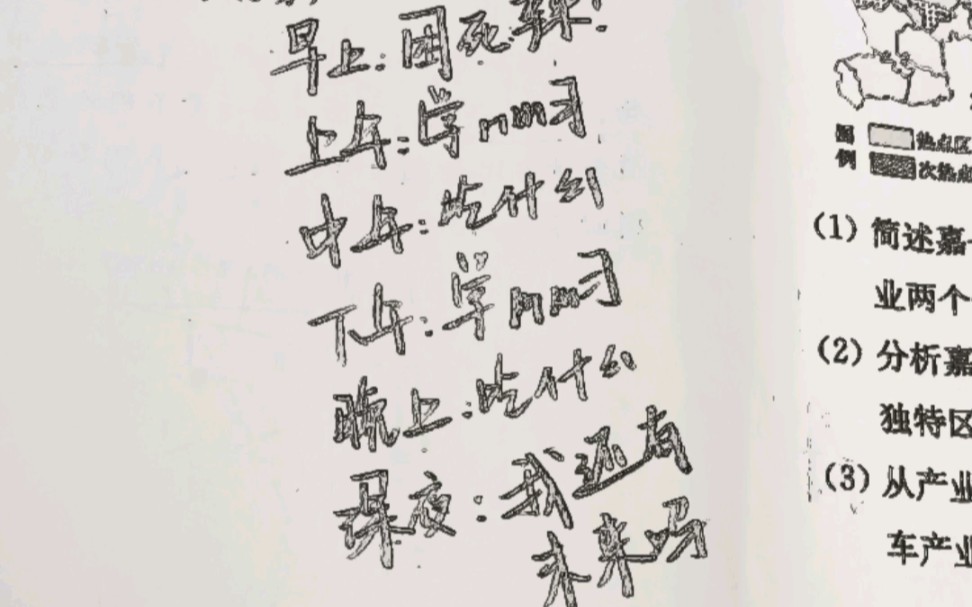 早上:困死
上午:学nmd习
中午:吃什么
下午:学nmd习
晚上:吃什么
深夜:我还有
未来吗
图例
热点区
次热点
(1) 简述嘉
业两个
(2) 分析嘉
独特区
(3) 从产业
车产业